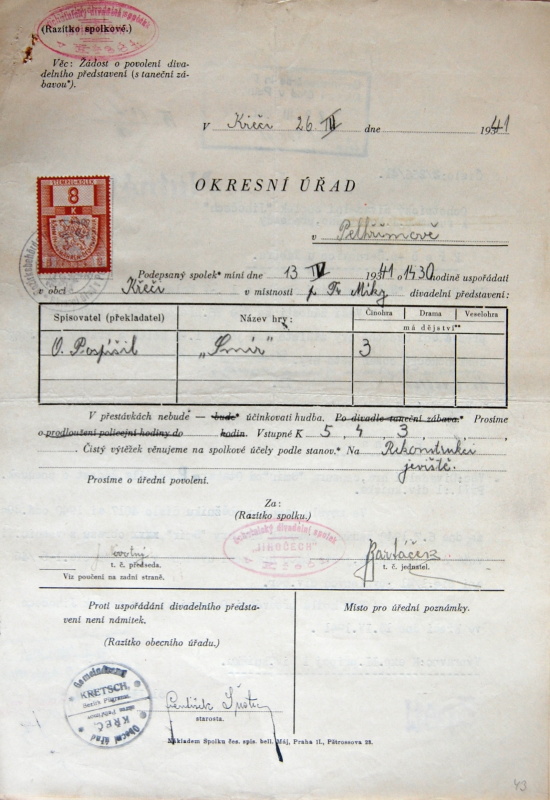 (Razítko spolkové.)
Věc: Žádost o povolení diva-
delního představení (s taneční zá-
bavou*).
V Křeči 26. III dne 1941
OKRESNÍ ÚŘAD
STEMPEL-KOLEK
8
K
v Pelhřimově
Podepsaný spolek* míní dne 13 IV 1941 o 1430 hodině uspořádati
v obci Křeči v místnosti p. Fr. Miky divadelní představení:
Spisovatel (překladatel) Název hry: Činohra Drama Veselohra
má dějství**
O. Pospíšil „Smír" 3
V přestávkách nebude — bude* účinkovati hudba. Po divadle taneční zábava.* Prosíme
o prodloužení policejní hodiny do hodin. Vstupné K 5, 4, 3,
Čistý výtěžek věnujeme na spolkové účely podle stanov.* Na Rekonstrukci
jeviště.
Prosíme o úřední povolení.
Za:
(Razítko spolku.)
Ochotnický divadelní spolek
Bartáček
t. č. předseda. t. č. jednatel.
Viz poučení na zadní straně.
Proti uspořádání divadelního předsta-
vení není námitek.
Místo pro úřední poznámky.
(Razítko obecního úřadu.)
Gemeindeamt
KRETSCH,
Bezirk Pilgrams.
KŘEČ,
Obecní úřad
František
starosta.
Nákladem Spolku čes. spis. bell. Máj, Praha II., Pštrossova 28.
43